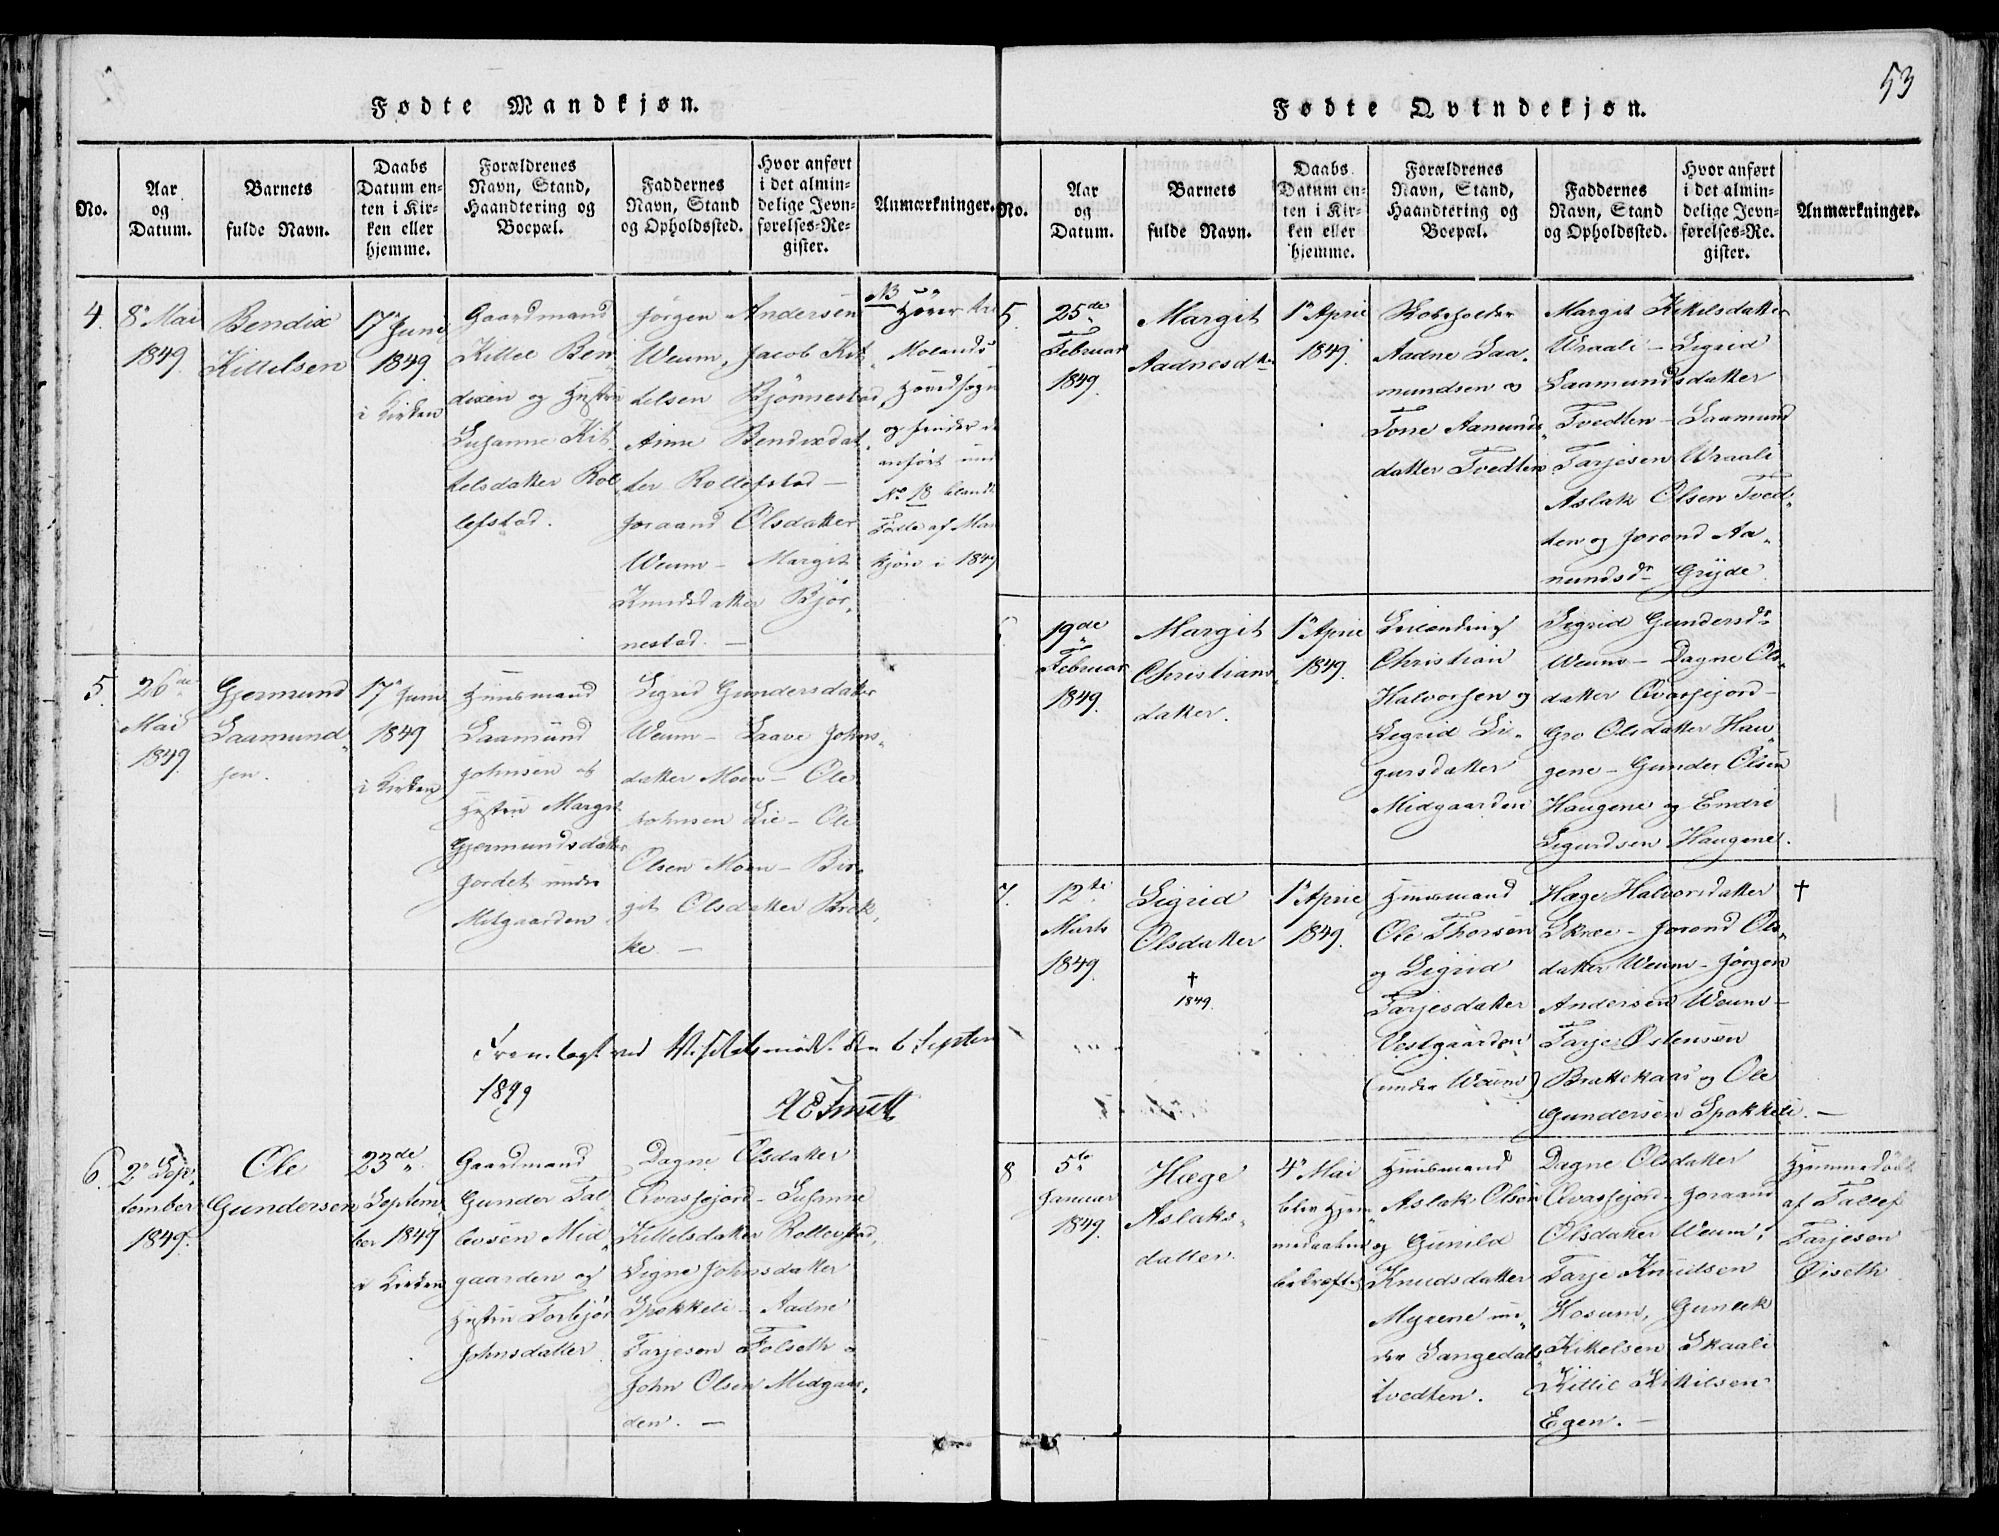 53
Fødte Mandkjøn.
No.
Aar
og
Datum.
Barnets
fulde Navn.
Daabs
Datum en-
ten i Kir-
ken eller
hjemme.
Forældrenes
Navn, Stand,
Haandtering og
Boepæl.
Faddernes
Navn, Stand
og Opholdssted.
Hvor anført
i det almin-
delige Jevn-
førelses-Re-
gister.
Anmærkninger.
4.
8de Mai
1849.
Bendix
Kittelsen
17de Juni
1849.
i Kirken
Gaardmand
Kittel Ben„
dixen og Hustru
Susanne Kit
telsdatter Rol„
lefstad.
Jörgen Andersen
Weum, Jacob Kit„
telsen Björnestad,
Anne Bendixdat„
ter Rollefstad —
Joraand Olsdatter
Weum — Margit
Knudsdatter Björ„
nestad. —
NB
Hører
Molands
Hovedsogn
og findes
anført
No 18 blandt
Fødte af Man
kjøn i 1849
5.
26de
Mai
1849.
Gjermund
Saamund„
sen.
17de Juni
1849
i Kirken
Huusmand
Saamund
Johnsen og
Hustru Margit
Gjermundsdatter
Jordet under
Midgaarden
Sigrid Gundersdatter
Weum — Laave Johns„
datter Moen — Ole
Johnsen Lie — Ole
Olsen Moen — Bir„
git Olsdatter Brek„
ke. —
Fremlagt ved Visitatsmødet den 6 Septem
1849
6.
2de Sep„
tember
1849.
Ole
Gundersen
23de
Septem„
ber 1849
i Kirken
Gaardmand
Gunder Tal„
levsen Mid„
gaarden og
Hustru Torbjør
Johnsdatter
Dagne Olsdatter
Qvassfjord — Susanne
Kittelsdatter Rollefstad,
Signe Johnsdatter
Spokkeli — Aadne
Tarjesen Folseth o
John Olsen Midgaar„
den. —
Fødte Qvindekjøn.
No.
Aar
og
Datum.
Barnets
fulde Navn.
Daabs
Datum en-
ten i Kir-
ken eller
hjemme.
Forældrenes
Navn, Stand,
Haandtering og
Boepæl.
Faddernes
Navn, Stand
og Opholdssted.
Hvor anført
i det almin-
delige Jevn-
førelses-Re-
gister.
Anmærkninger.
5.
25de
Februar
1849.
Margit
Aadnesdtr
1ste April
1849.
Aadne Saa„
mundsen og
Torre Aamunds„
datter Tvedten
Margit Kittelsdatter
Wraali — Sigrid
Saamundsdatter
Tvedten — Saamund
Tarjesen Wraali
Aslak Olsen Tved„
ten og Jorond Aa„
nundsdr Gryde.
19de
Februar
1849.
Margit
Christians„
datter.
1ste April
1849.
Leilænding
Christian
Halvorsen og
Sigrid Si„
gursdatter
Midgaarden
Sigrid Gundersdr
Weum — Dagne Ols„
datter Qvassfjord —
Gro Olsdatter Hau„
gene — Gunder Olsen
Haugene og Endre
Sigurdsen Haugene.
7.
12te
Marts
1849.
Sigrid
Olsdatter
†
1849.
1ste April
1849.
Huusmand
Ole Thorsen
og Sigrid
Tarjesdatter
Vestgaarden
(under Weum)
Hæge Halvorsdatter
Skree — Jorond Ols„
datter Weum — Jørgen
Andersen Weum —
Tarje Østensen
Brattekaas og Ole
Gundersen Spokkeli. —
†
8
5te
Januar
1849.
Hæge
Aslaks„
datter.
4de Mai
blev Hjem„
medaaben
bekræftet
Huusmand
Aslak Olsen
og Gunild
Knudsdatter
Myrene un„
der Langedals„
tvedten.
Dagne Olsdatter
Qvassfjord — Joraand
Olsdatter Weum,
Tarje Knudsen
Kosum, Gunleik
Kittelsen Skaali
Kittil Kittilsen
Egen. —
Hjemmedøbt
af Tallef
Tarjesen
Øiseth